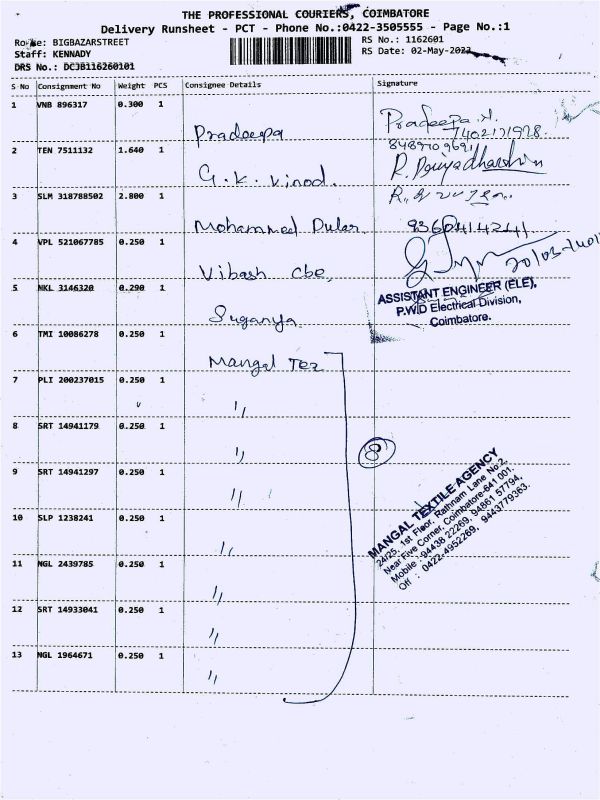 THE PROFESSIONAL COURIERS, COIMBATORE
Delivery Runsheet - PCT - Phone No.:0422-3505555 - Page No.:1
Route: BIGBAZARSTREET
RS No.: 1162601
Staff: KENNADY
RS Date: 02-May-2023
DRS No.: DCJB116260101
S No Consignment No Weight PCS Consignee Details Signature
1 VNB 896317 0.300 1 Pradeepa
Pradeepa
7402171978
2 TEN 7511132 1.640 1 G.K. Vinod.
8489709691
3 SLM 318788502 2.800 1 Mohammed
4 VPL 521067785 0.250 1 Vibash Cbe,
5 NKL 3146320 0.290 1 Suganya
ASSISTANT ENGINEER (ELE),
P.W.D Electrical Division,
Coimbatore.
6 TMI 10086278 0.250 1 Mangal Tex
7 PLI 200237015 0.250 1 "
8 SRT 14941179 0.250 1 "
8
9 SRT 14941297 0.250 1 "
10 SLP 1238241 0.250 1 "
11 NGL 2439785 0.250 1 "
12 SRT 14933041 0.250 1 "
13 NGL 1964671 0.250 1 "
MANGAL TEXTILE AGENCY
24/25, 1st Floor, Rathnam Lane No:2,
Near Five Corner, Coimbatore-641 001.
Mobile : 94438 22269, 94861 57794,
Off : 0422-4952269, 9443779363.